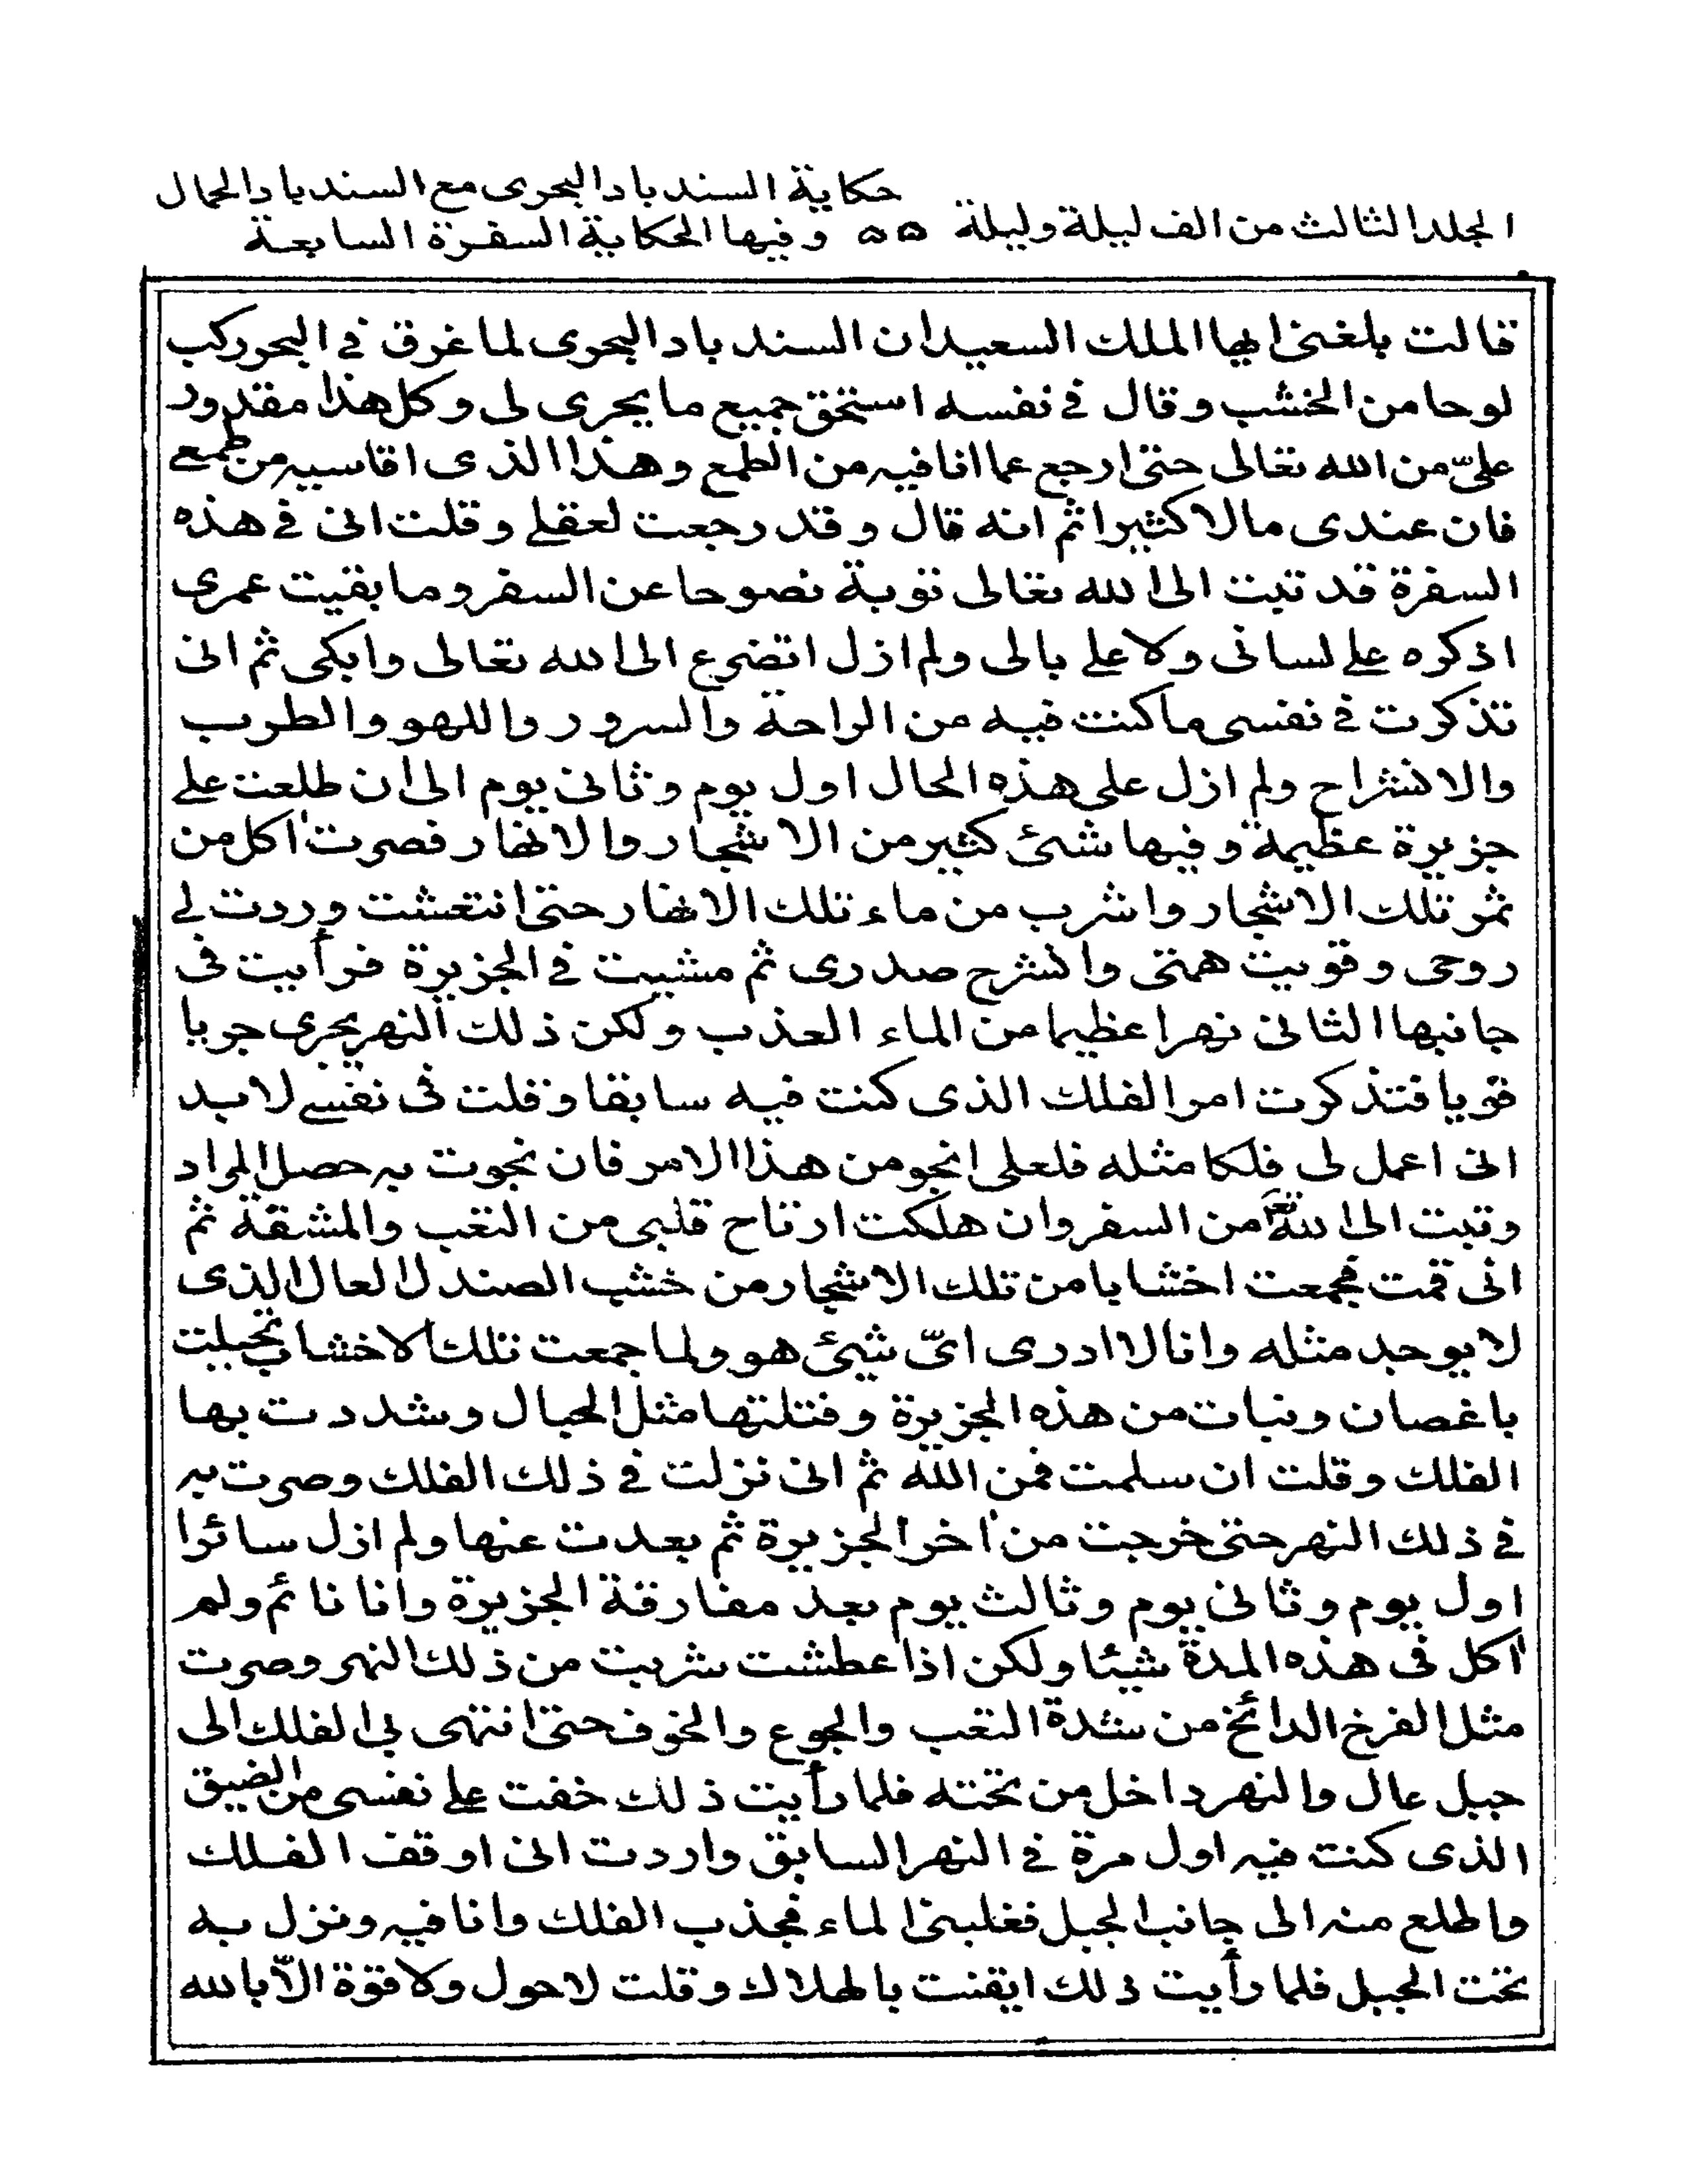 المجلد الثالث من الف ليلة وليلة ٥٥
حكاية السندباد البحرى مع السندباد الحمال
وفيها الحكاية السفرة السابعة
قالت بلغنى ايها الملك السعيد ان السندباد البحرى لما غرق فى البحر ركب
لوحا من الخشب وقال فى نفسه استحق جميع ما يجرى لى وكل هذا مقدور
علىّ من الله تعالى حتى ارجع عما انا فيه من الطمع وهذا الذى اقاسيه من طمعى
فان عندى مالا كثيرا ثم انه قال وقد رجعت لعقلى وقلت انى فى هذه
السفرة قد تبت الى الله تعالى توبة نصوحا عن السفر وما بقيت عمرى
اذكره على لسانى ولا على بالى ولم ازل اتضرع الى الله تعالى وابكى ثم انى
تذكرت فى نفسى ما كنت فيه من الراحة والسرور واللهو والطرب
والانشراح ولم ازل على هذه الحال اول يوم وثانى يوم الى ان طلعت على
جزيرة عظيمة وفيها شئ كثير من الاشجار والانهار فصرت اكل من
ثمر تلك الاشجار واشرب من ماء تلك الانهار حتى انتعشت وردت لى
روحى وقويت همتى وانشرح صدرى ثم مشيت فى الجزيرة فرأيت فى
جانبها الثانى نهرا عظيما من الماء العذب ولكن ذلك النهر يجرى جريا
قويا فتذكرت امر الفلك الذى كنت فيه سابقا وقلت فى نفسى لا بد
انى اعمل لى فلكا مثله فلعلى انجو من هذا الامر فان نجوت به حصل المراد
وتبت الى الله تعَ من السفر وان هلكت ارتاح قلبى من التعب والمشقة ثم
انى قمت فجمعت اخشابا من تلك الاشجار من خشب الصندل العال الذى
لا يوجد مثله وانا لا ادرى اىّ شئ هو ولما جمعت تلك الاخشاب تحيلت
باغصان ونبات من هذه الجزيرة وفتلتها مثل الحبال وشددت بها
الفلك وقلت ان سلمت فمن الله ثم انى نزلت فى ذلك الفلك وصرت به
فى ذلك النهر حتى خرجت من اخر الجزيرة ثم بعدت عنها ولم ازل سائرا
اول يوم وثانى يوم وثالث يوم بعد مفارقة الجزيرة وانا نائم ولم
اكل فى هذه المدة شيئا ولكن اذا عطشت شربت من ذلك النهر وصرت
مثل الفرخ الدائخ من شدة التعب والجوع والخوف حتى انتهى بى الفلك الى
جبل عال والنهر داخل من تحته فلما رأيت ذلك خفت على نفسى من الضيق
الذى كنت فيه اول مرة فى النهر السابق واردت انى اوقف الفلك
واطلع منه الى جانب الجبل فغلبنى الماء فجذب الفلك وانا فيه ونزل به
تحت الجبل فلما رأيت ذلك ايقنت بالهلاك وقلت لا حول ولا قوة الّا بالله